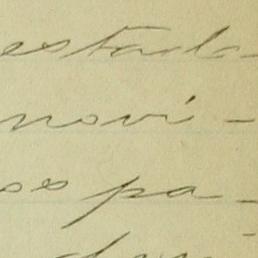 estada-
novi-
os pa-